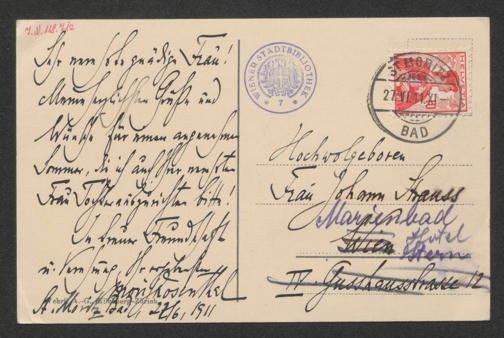 I.N. 118.712
Sehr verehrte gnädige Frau!
Meine herzlichsten Grüße und
Wünsche für einen angenehmen
Sommer, die ich auch der werten
Frau Tochter auszurichten bitte!
In treuer Freundschaft
u. Verehrung Ihr ergebenster
Moriz Rosenthal
St. Moritz Bad, 27/6, 1911
WIENER STADTBIBLIOTHEK
* 7 *
ST. MORITZ
27.VI.11.XI
BAD
HELVETIA
10
Hochwolgeboren
Frau Johann Strauss
Marienbad
Wien
Hotel
Stern
IV. Gusshausstrasse 12